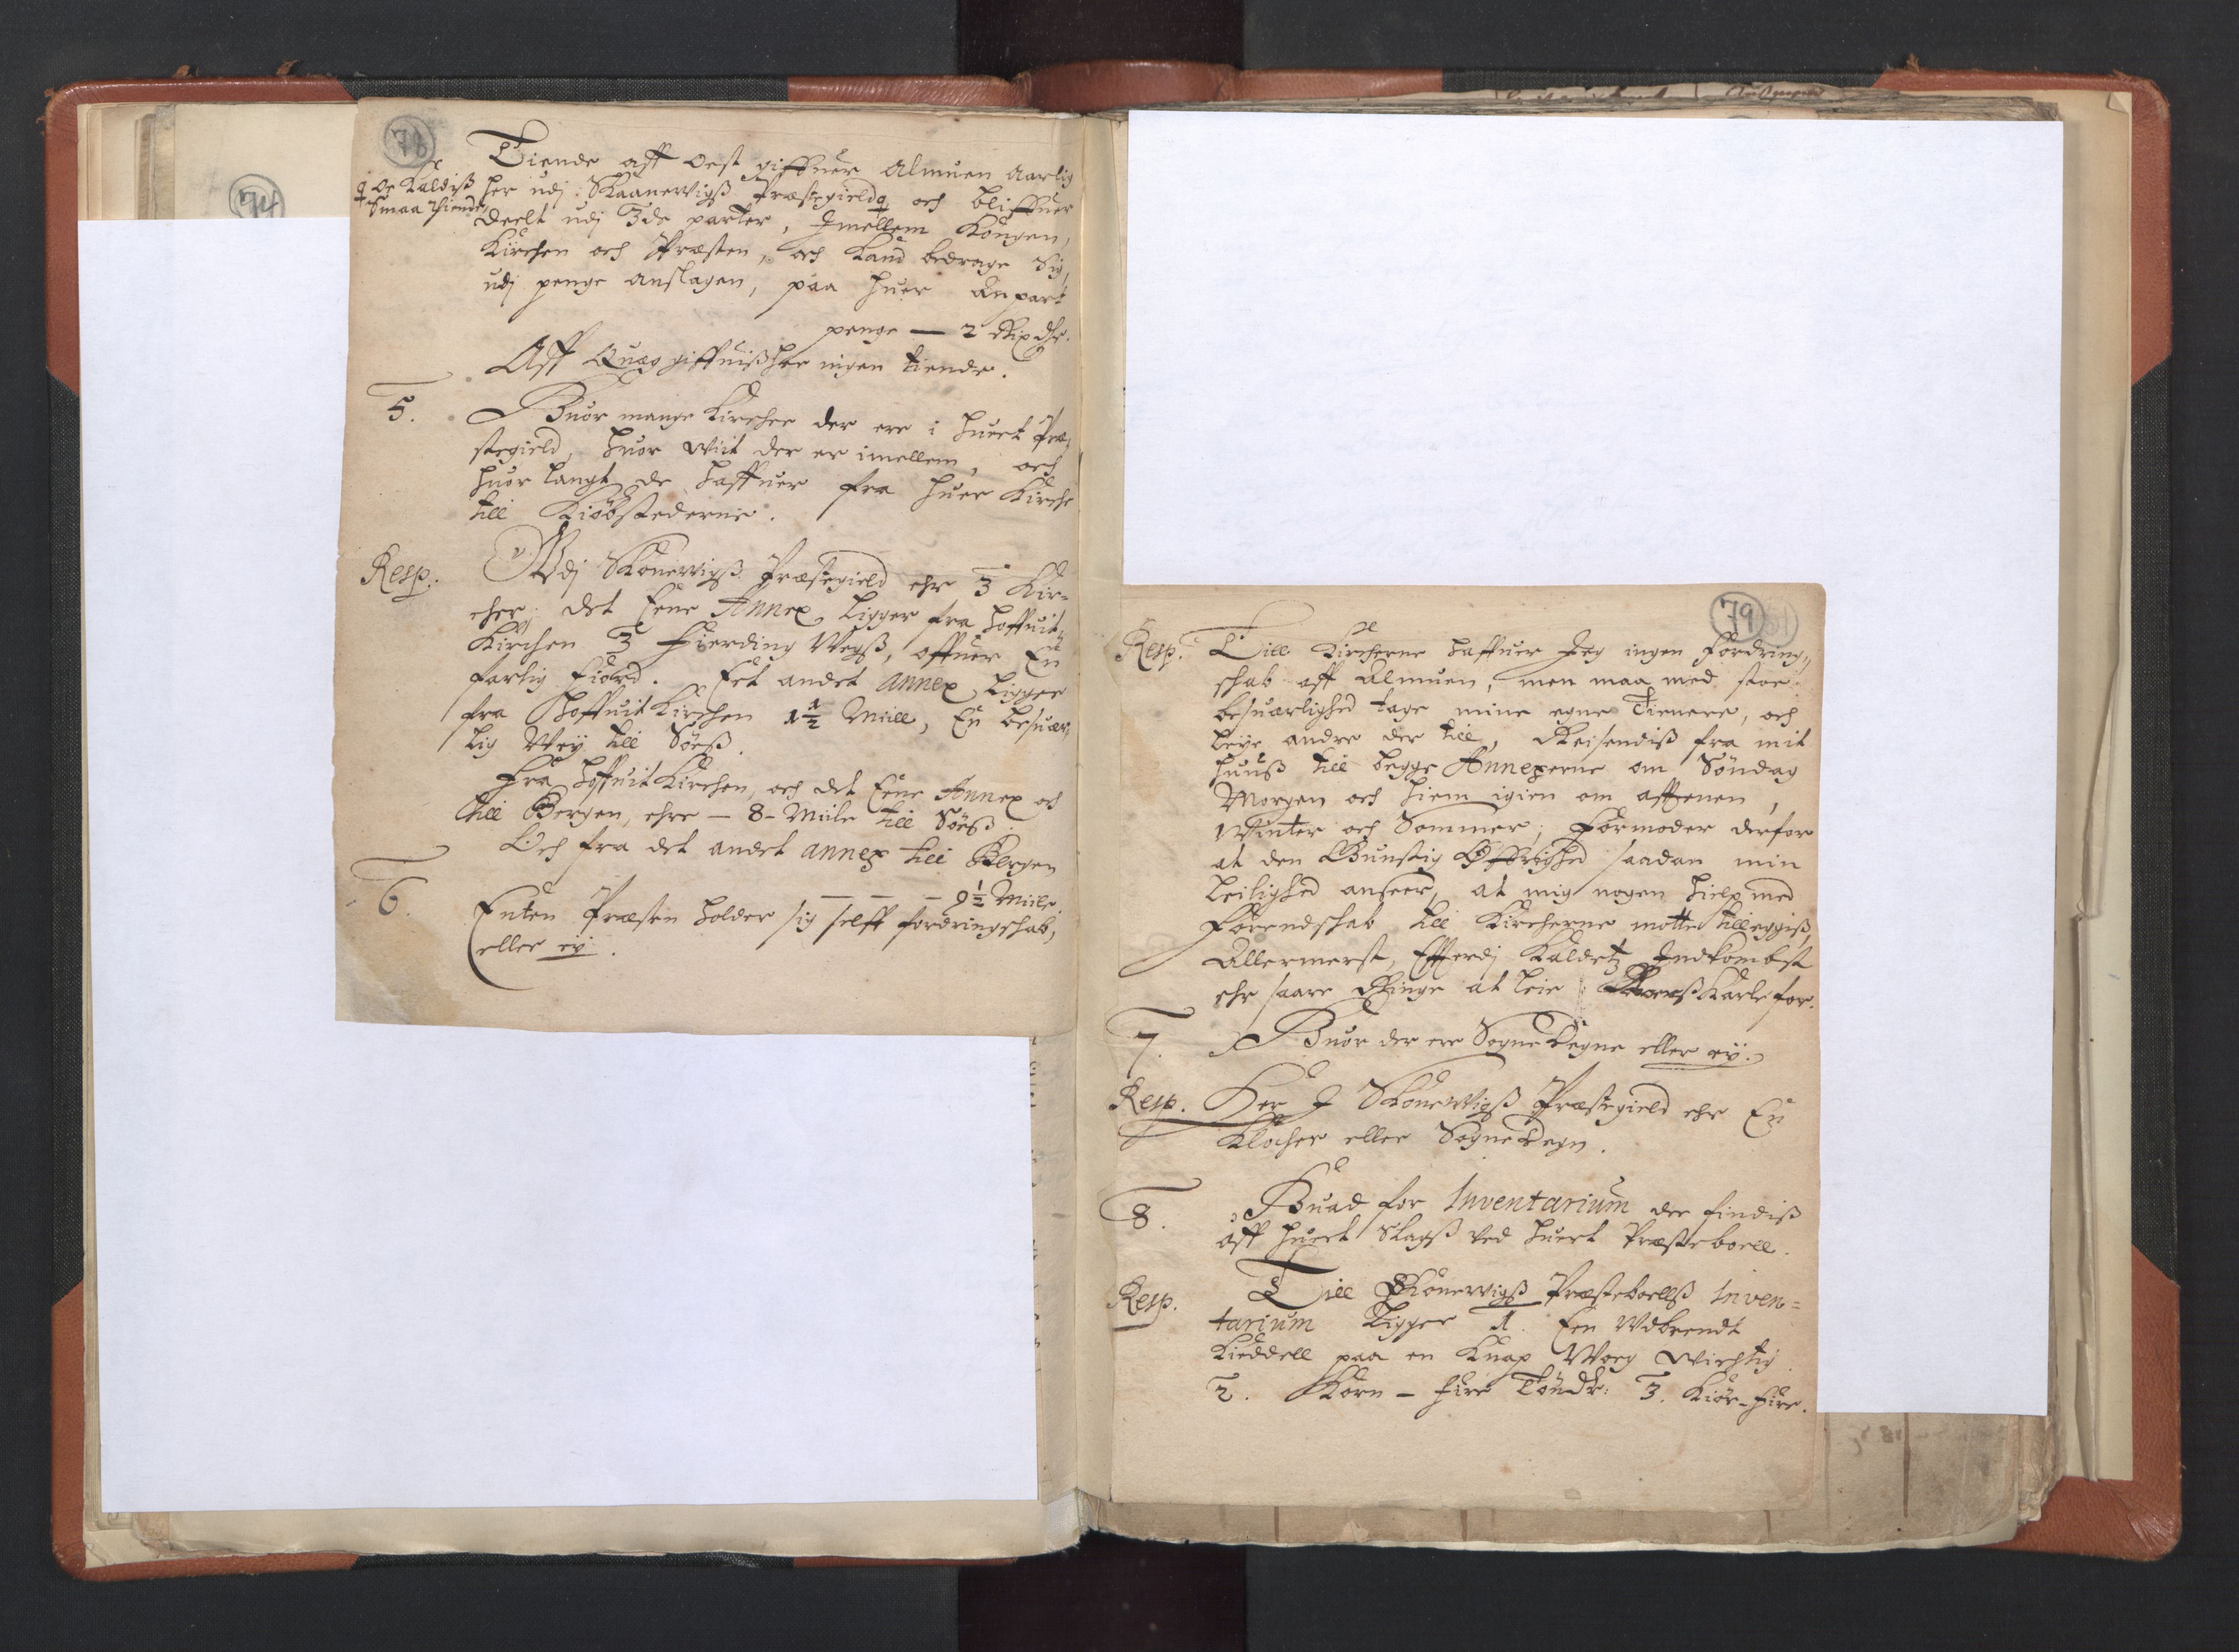 78
74
Tiende aff Oest giffuer Almuen Aarlig
Oc Kaldiß
Smaa Tiende
her udj Skaanewigß Præstegield och bliffuer
deelt udj 3de parter, Imellem Kongen,
Kirchen och Præsten, och Kand bedrage sig,
udj penge anslagen, paa huer Anpart
penge — 2 Rixdlr.
Aff Quæg giffuiß her ingen tiende.
5. Huor mange Kircher der ere i huert Præ-
stegield, huor wiit der er imellem, och
huor langt de haffuer fra huer Kirche
till Kiøbstederne.
Resp. Udj Skonewigß Præstegield ehr 3 Kir-
cher; det Eene Annex ligger fra hoffuit
Kirchen 3 Fierding Wegß, offuer En
farlig Fiord. Eet andet Annex ligger
fra Hoffuit Kirchen 1 1/2 Miill, En besuær-
lig Wey till Søeß.
Fra Hoffuit Kirchen, och det Eene Annex och
till Bergen, ehre — 8 - Miile till Søeß.
Och fra det andet annex till Bergen
— — — 9 1/2 Miile.
6. Enten Præsten holder sig selff fordringschab,
eller ey.
79
Resp. Till Kircherne haffuer Jeg ingen Fordring-
schab aff Almuen, men maa med stoer
besuærlighed tage mine egne Tienere, och
leye andre der till, Reisendiß fra mit
huuß till begge Annexerne om Søndag
Morgen och hiem igien om afftenen,
Winter och Sommer; Formoder derfor
at den Gunstig Øffrighed saadan min
leilighed anseer, at mig nogen hielp med
Førendschab till Kircherne motte tilleggiß,
Allermest, Efferdj Kaldetz Indkombst
ehr saare Ringe at leie Karle for.
7. Huor der ere Sogne Degne eller ey.
Resp. Her I Skonewigß Præstegield ehr En
Klocher eller Sogne Degn.
8. Huad for Inventarium der findiß
aff huert Slagß ved huert Præsteboell.
Resp. Till Skonewigß Præsteboellß Inven=
tarium ligger 1. Een Wdbrendt
Kieddell paa en Knap Woeg Wichtig.
2. Korn - fire Tøndr: 3. Kiør - fire.